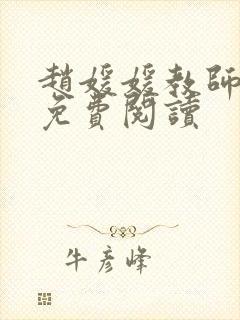 趙媛媛教師
免費閱讀
牛彥峰